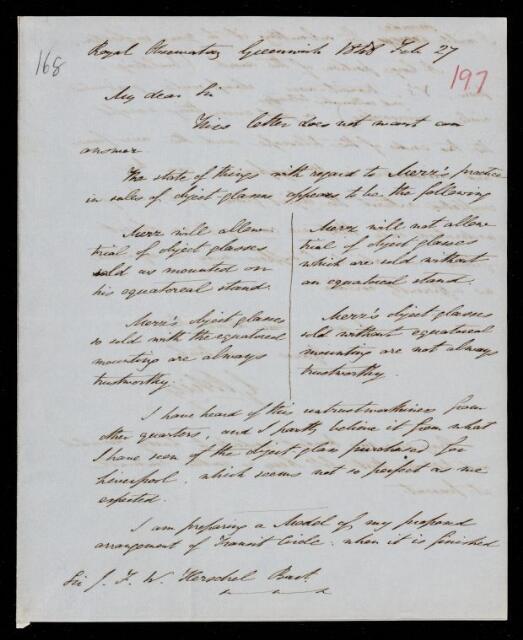 168
Royal Observatory Greenwich 1848 Feb 27
197
My dear Sir
This letter does not want an
answer
The state of things with regard to Merz's practice
in sales of object glasses appears to be the following
Merz will allow
trial of object glasses
sold as mounted on
his equatoreal stand.
Merz's object glasses
so sold with the equatoreal
mounting are always
trustworthy.
Merz will not allow
trial of object glasses
which are sold without
an equatoreal stand.
Merz's object glasses
sold without equatoreal
mounting are not always
trustworthy.
I have heard of this untrustworthiness from
other quarters, and I partly believe it from what
I have seen of the object glass purchased for
Liverpool, which seems not so perfect as we
expected.
I am preparing a Model of my proposed
arrangement of Transit Circle: when it is finished
Sir J. F. W. Herschel Bart